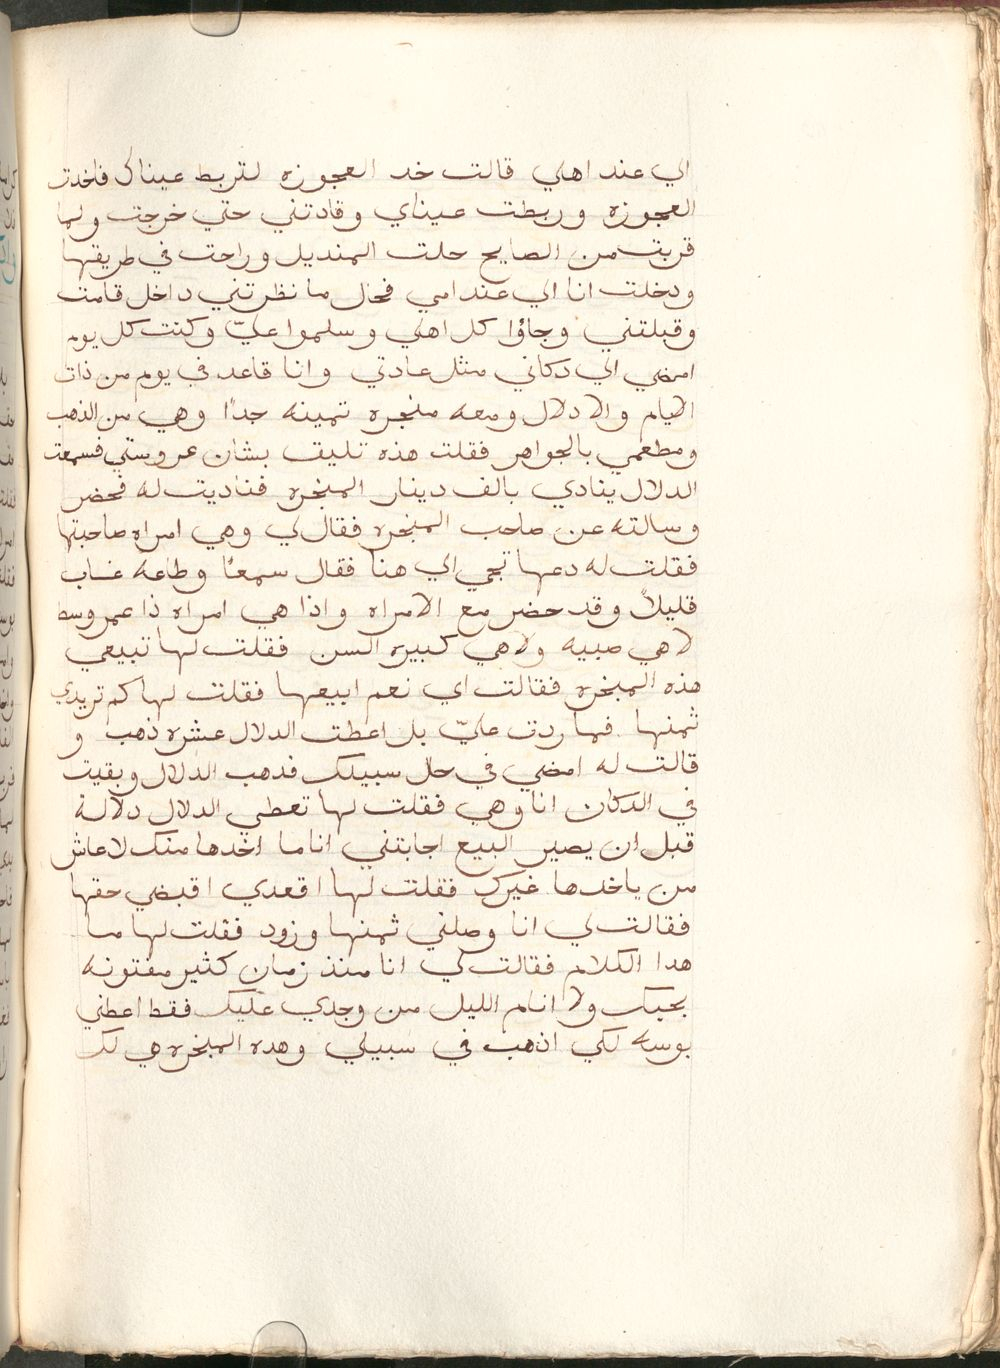 الي عند اهلي قالت خد العجوزه لتربط عيناك فاخدت
العجوزه وربطت عيناي وقادتني حتي خرجت ولما
قربت من الصايح حلت المنديل وراحت في طريقها
ودخلت انا الي عند امي فحال ما نظرتني داخل قامت
وقبلتني وجاؤا كل اهلي وسلموا عليّ وكنت كل يوم
امضي الي دكاني مثل عادتي وانا قاعد في يوم من ذات
الايام والا دلال ومعه منجره تمينه جدًا وهي من الذهب
ومطعمي بالجواهر فقلت هذه تليق بشان عروستي فسمعت
الدلال ينادي بالف دينار المبخره فناديت له فحضر
وسالته عن صاحب المبخره فقال لي وهي امراه صاحبتها
فقلت له دعها تجي الي هنا فقال سمعًا وطاعه غاب
قليلاً وقد حضر مع الامراه واذا هي امراه ذا عمر وسط
لا هي صبيه ولا هي كبيره السن فقلت لها تبيعي
هذه المبخره فقالت اي نعم ابيعها فقلت لها كم تريدي
ثمنها فما ردت عليّ بل اعطت الدلال عشره ذهب و
قالت له امضي في حال سبيلك فدهب الدلال وبقيت
في الدكان انا وهي فقلت لها تعطي الدلال دلالة
قبل ان يصير البيع اجابتني انا ما اخدها منك لا عاش
من ياخدها غيرك فقلت لها اقعدي اقبضي حقها
فقالت لي انا وصلني ثمنها وزود فقلت لها ما
هدا الكلام فقالت لي انا منذ زمان كثير مفتونه
بحبك ولا انام الليل من وجدي عليك فقط اعطني
بوسه لكي اذهب في سبيلي وهده المبخره هي لك